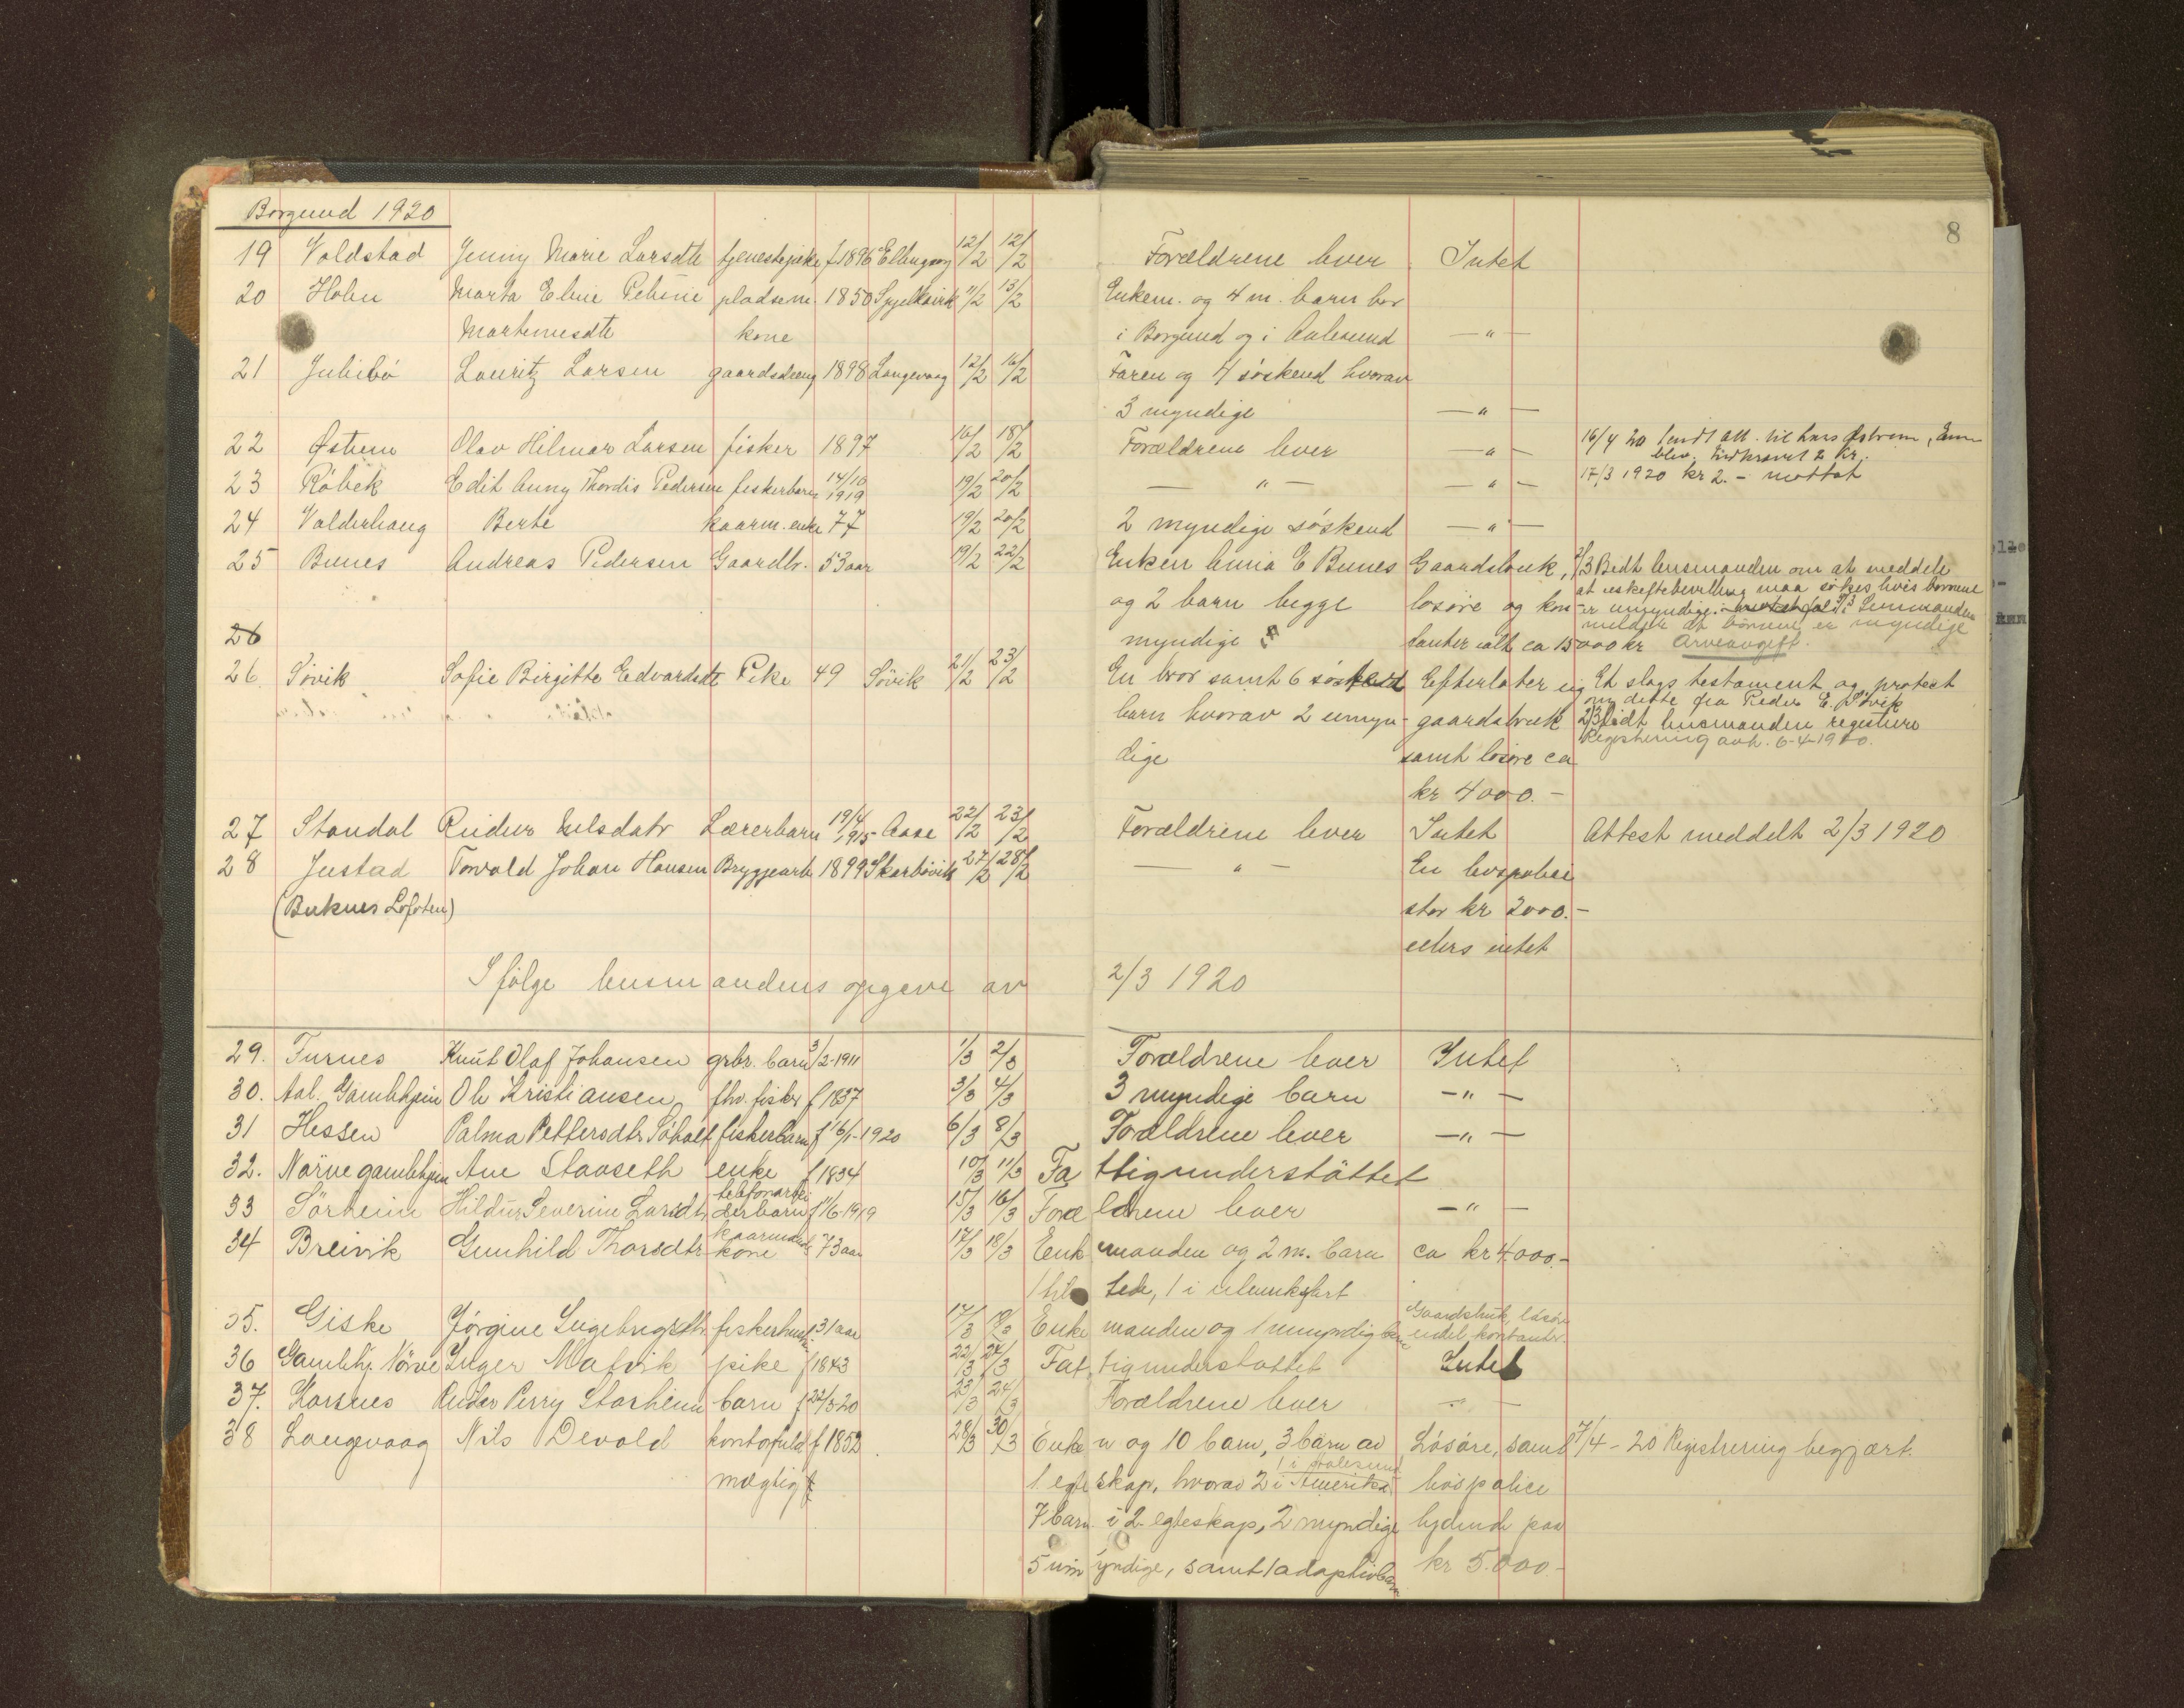 Borgund 1920
8
19 Valdstad Jenny Marie Larsdtr tjenestepike f 1896 Ellingsøy 12/2 12/2 Forældrene lever Intet
20 Holen Marta Eline Petrine pladsem. 1850 Spjelkavik 11/2 13/2 Enkem. og 4 m. barn bor
Martinusdtr kone i Borgund og i Aalesund —"—
21 Julibø Lauritz Larsen gaardsdreng 1898 Langevaag 12/2 16/2 Faren og 4 søskend hvorav
3 myndige —"—
22 Østrem Olav Hilmar Larsen fisker 1897 16/2 18/2 Forældrene lever —"— 16/4 20 sendt att. til Lars Østrem,
blev indkrævet 2 kr.
23 Røbek Edit Anny Thordis Pedersen fiskerbarn 14/10 1919 19/2 20/2 —"— —"— 17/3 1920 kr 2.- mottat
24 Valderhaug Berte kaarm. enke 77 19/2 20/2 2 myndige søskend —"—
25 Bunes Andreas Pedersen Gaardbr. 53 aar 19/2 22/2 Enken Anna E Bunes Gaardsbruk, 2/3 Bedt lensmanden om at meddele
at uskiftebevilling maa søkes hvis børnene
og 2 barn begge løsøre og kon- er umyndige. Lensmanden
melder at børnene er myndige
26 myndige tanter ialt ca 15000 kr Arveavgift.
26. Søvik Sofie Birgitte Edvardsdt Pike 49 Søvik 21/2 23/2 En bror samt 6 søskend Efterlater sig Et slags testament og protest
om dette fra Peder E. Søvik
barn hvorav 2 umyn- gaardsbruk 2/3 bedt lensmanden registrere
Registrering avh. 6-4-1920.
dige samt løsøre ca
kr 4000.-
27 Standal Reidun Nilsdatr Lærerbarn 19/4 1915 Aase 22/2 23/2 Forældrene lever Intet Attest meddelt 2/3 1920
28 Justad Torvald Johan Hansen Bryggearb. 1899 Skarbøvik 27/2 28/2 —"— En livspolice
(Buknes Lofoten) stor kr 2000.-
ellers intet
Ifølge lensmandens opgave av 2/3 1920
29. Furnes Knut Olaf Johansen grbr. barn 3/2-1911 1/3 2/3 Forældrene lever Intet
30. Aal. Gamlehjem Ole Kristiansen fhv. fisker f 1837 3/3 4/3 3 myndige barn —"—
31 Hessen Palma Pettersdtr Søholt fiskerbarn f 16/1-1920 6/3 8/3 Forældrene lever —"—
32. Nørve gamlehjem Ane Stavseth enke f 1834 10/3 11/3 Fattigunderstøttet
33 Sørheim Hildur Severine Larsdtr telefonarbei
derbarn f 1/6-1919 15/3 16/3 Forældrene lever —"—
34 Breivik Gunhild Thorsdtr kaarmands
kone 73 aar 17/3 18/3 Enkemanden og 2 m. barn ca kr 4000.-
1 tilstede, 1 i utenriksfart
35. Giske Jørgine Ingebrigtsdtr fiskerhustru 31 aar 17/3 18/3 Enkemanden og 1 umyndig barn Gaardsbruk, løsøre
endel kontanter.
36 Gamlehj. Nørve Inger Mafvik pike f 1843 22/3 24/3 Fattigunderstøttet Intet
37. Korsnes Reidar Perry Storheim barn f 22/3 20 23/3 24/3 Forældrene lever —"—
38 Langevaag Nils Devold kontorfuld f 1852. 28/3 30/3 Enken og 10 barn, 3 barn av Løsøre, samt 7/4-20 Registrering begjært.
1 i Aalesund
mægtig 1 egteskap, hvorav 2 i Amerika livspolice
7 barn i 2. egteskap, 2 myndige lydende paa
5 umyndige, samt 1 adoptivbarn kr 5.000.-